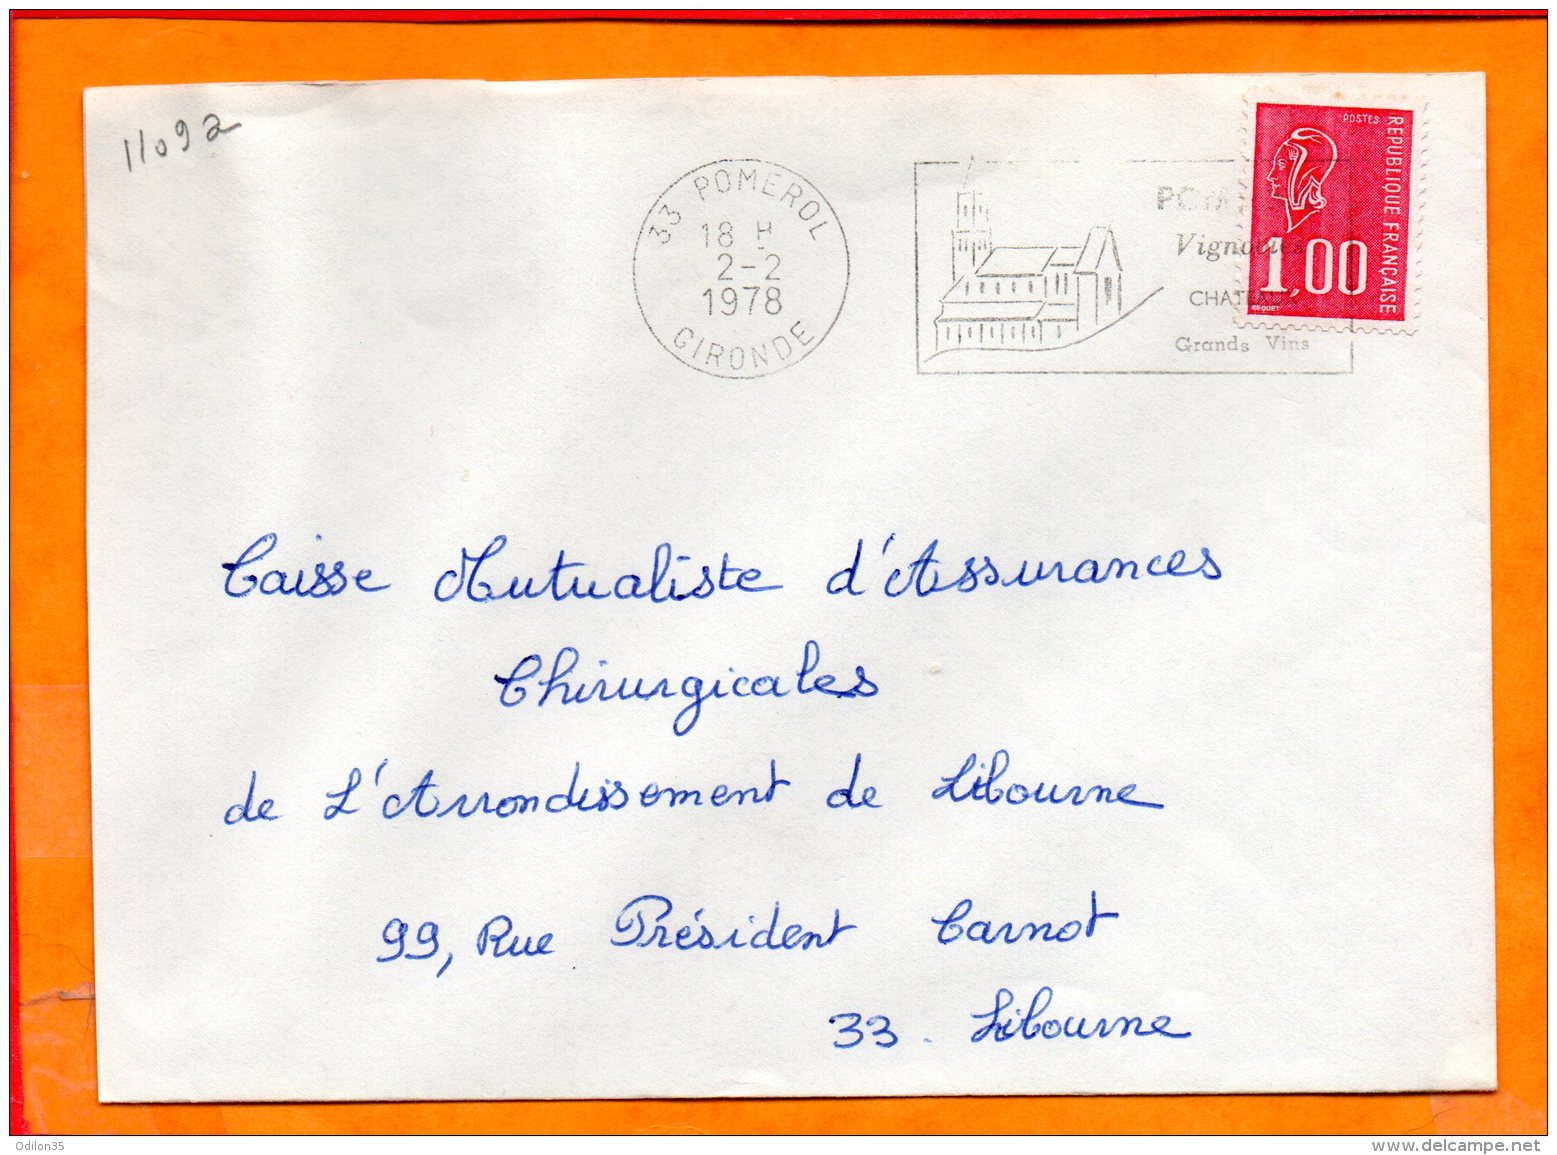 11092
33 POMEROL
18 H
2-2
1978
GIRONDE
Vignobles
CHATEAUX
Grands Vins
POSTES
REPUBLIQUE FRANÇAISE
1,00
BEQUET
Caisse Mutualiste d'Assurances
Chirurgicales
de L'Arrondissement de Libourne
99, Rue Président Carnot
33. Libourne
Odilon35
delcampe.net